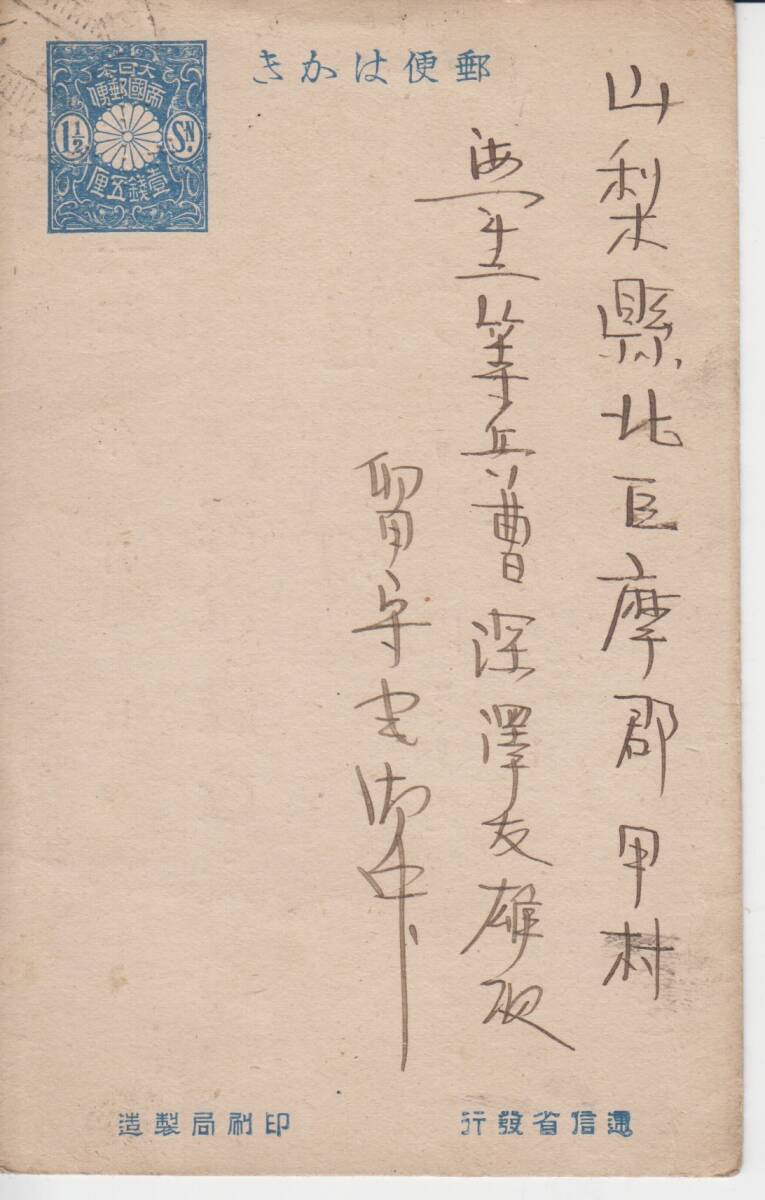 郵便はかき
大日本
帝國郵便
1½ SN.
壹錢五厘
山梨縣北巨摩郡甲村
海軍等兵曹深澤友雄殿
留守宅御中
遞信省發行
印刷局製造